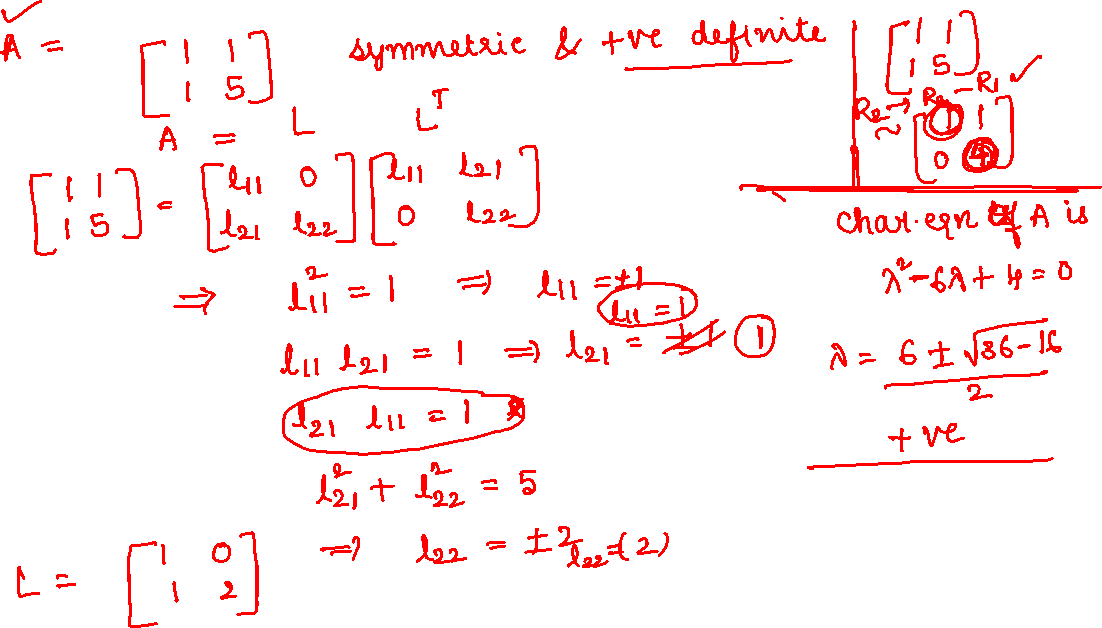 ✓
A = [1 1; 1 5] symmetric & +ve definite
A = L Lᵀ
[1 1; 1 5] = [l₁₁ 0; l₂₁ l₂₂] [l₁₁ l₂₁; 0 l₂₂]
⇒ l₁₁² = 1 ⇒ l₁₁ = ±1
l₁₁ = 1
l₁₁ l₂₁ = 1 ⇒ l₂₁ = ±1 1
l₂₁ l₁₁ = 1
l₂₁² + l₂₂² = 5
⇒ l₂₂ = ±2 l₂₂ = (2)
L = [1 0; 1 2]
[1 1; 1 5]
R₂ → R₂ - R₁ ✓
~ [1 1; 0 4]
char. eqn of A is
λ² - 6λ + 4 = 0
λ = (6 ± √(36 - 16)) / 2
+ve